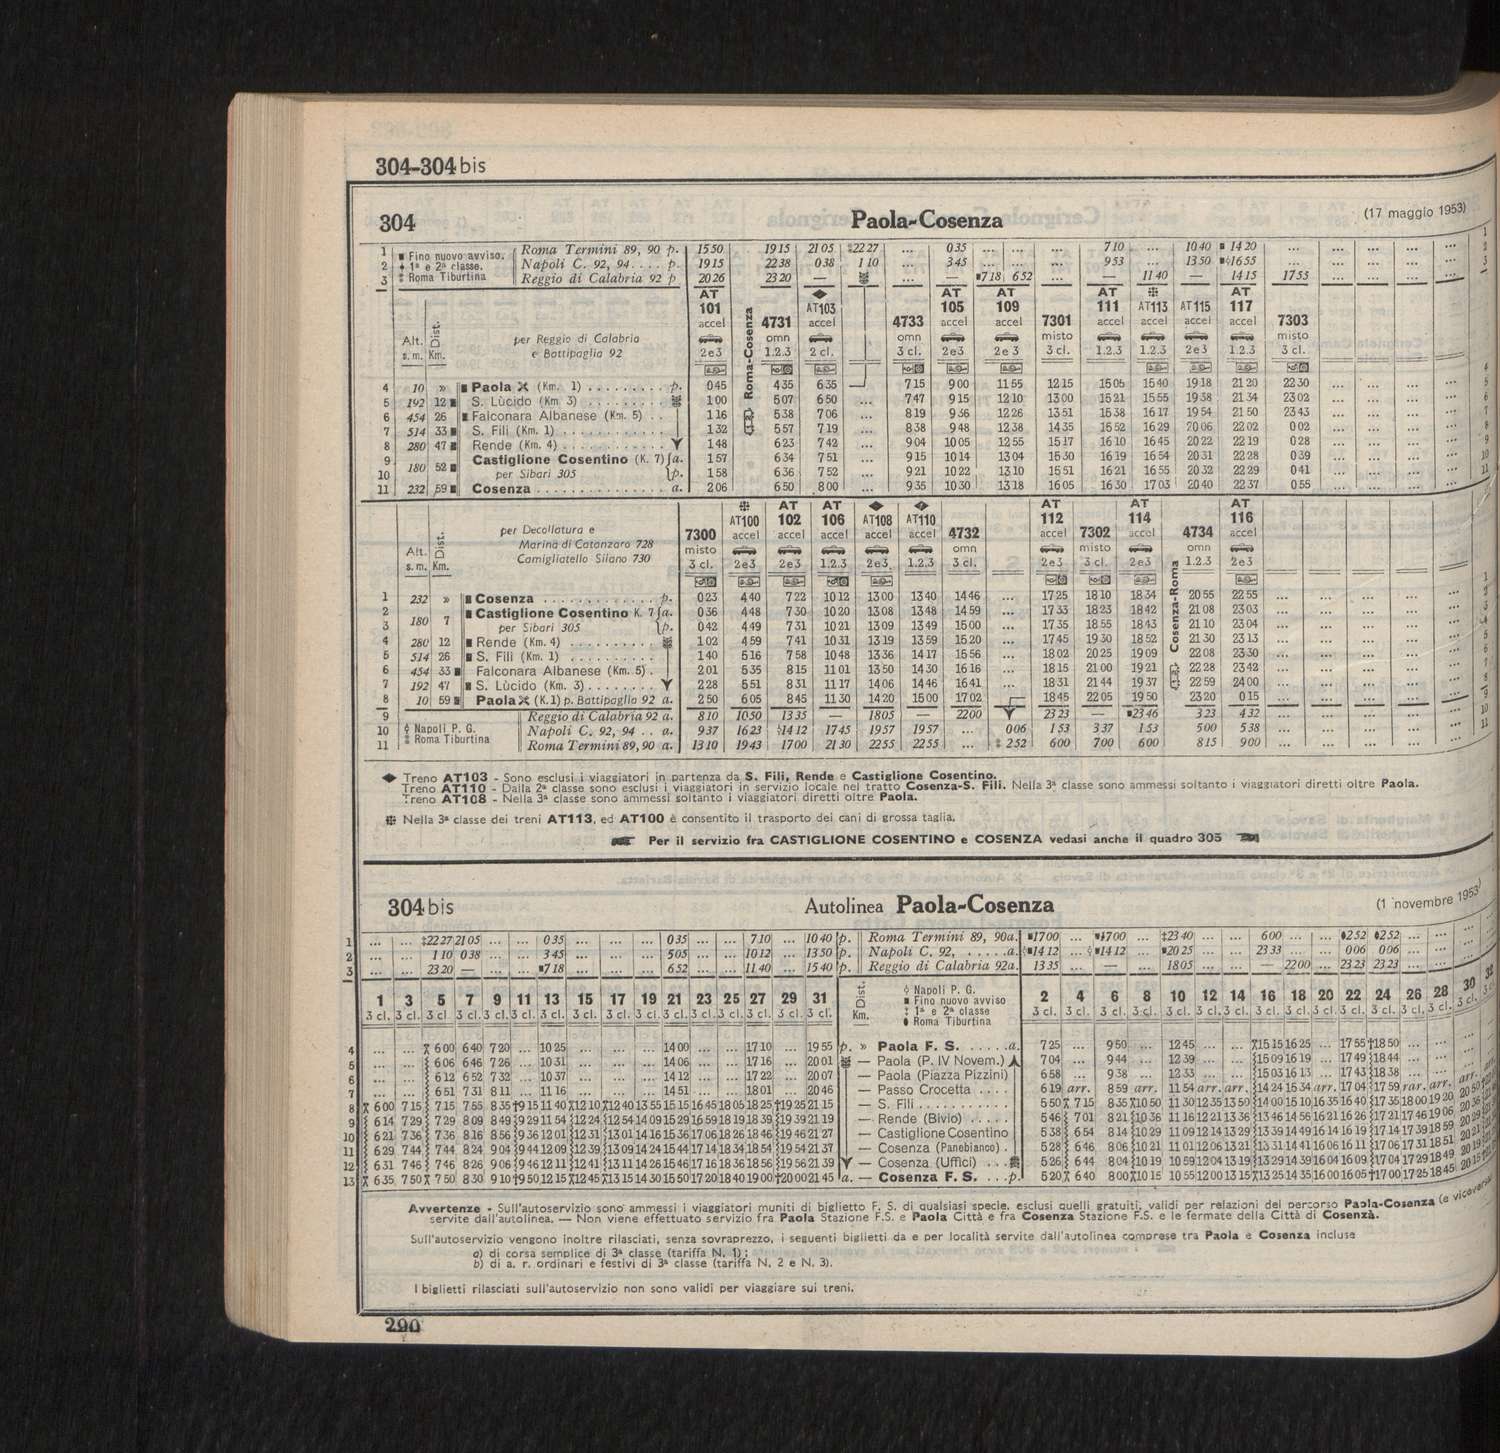 304-304 bis
304 Paola-Cosenza (17 maggio 1953)
1 ∎ Fino nuovo avviso. Roma Termini 89, 90 p. 15 50 19 15 21 05 ‡22 27 ... 0 35 ... ... ... 7 10 ... 10 40 ∎ 14 20 ... ... ... ... ... 1
2 ♦ 1ª e 2ª classe. Napoli C. 92, 94 .... p. 19 15 22 38 0 38 1 10 ... 3 45 ... ... ... 9 53 ... 13 50 ∎◊16 55 ... ... ... ... ... 2
3 ‡ Roma Tiburtina Reggio di Calabria 92 p 20 26 23 20 — ... — ∎7 18 6 52 ... — 11 40 — 14 15 17 55 ... ... ... ... 3
AT ◆ AT AT AT ❉ AT
101 4731 AT103 4733 105 109 7301 111 AT113 AT115 117 7303
accel omn accel omn accel accel misto accel accel accel accel misto
Alt. s. m. Dist. Km. per Reggio di Calabria e Battipaglia 92
2e3 Roma-Cosenza 1.2.3 2 cl. 3 cl. 2e3 2e 3 3 cl. 1.2.3 1.2.3 2e3 1 2.3 3 cl.
4 10 » ∎ Paola (Km. 1) ......... p. 0 45 4 35 6 35 7 15 9 00 11 55 12 15 15 05 15 40 19 18 21 20 22 30 ... ... ... ... 4
5 192 12 ∎ S. Lùcido (Km 3) ........ 1 00 5 07 6 50 ... 7 47 9 15 12 10 13 00 15 21 15 55 19 38 21 34 23 02 ... ... ... ... 5
6 454 26 ∎ Falconara Albanese (Km. 5) .. 1 16 5 38 7 06 ... 8 19 9 36 12 26 13 51 15 38 16 17 19 54 21 50 23 43 ... ... ... ... 6
7 514 33 ∎ S. Fili (Km. 1) .......... 1 32 5 57 7 19 ... 8 38 9 48 12 38 14 35 15 52 16 29 20 06 22 02 0 02 ... ... ... ... 7
8 280 47 ∎ Rende (Km. 4) .......... 1 48 6 23 7 42 ... 9 04 10 05 12 55 15 17 16 10 16 45 20 22 22 19 0 28 ... ... ... ... 8
9 180 52 ∎ Castiglione Cosentino (K. 7) a. 1 57 6 34 7 51 ... 9 15 10 14 13 04 15 30 16 19 16 54 20 31 22 28 0 39 ... ... ... ... 9
10 per Sibari 305 p. 1 58 6 36 7 52 ... 9 21 10 22 13 10 15 51 16 21 16 55 20 32 22 29 0 41 ... ... ... ... 10
11 232 59 ∎ Cosenza ............... a. 2 06 6 50 8 00 ... 9 35 10 30 13 18 16 05 16 30 17 03 20 40 22 37 0 55 ... ... ... ... 11
❉ AT AT ◆ AT AT AT
7300 AT100 102 106 AT108 AT110 4732 112 7302 114 4734 116
misto accel accel accel accel accel omn accel misto accel omn accel
Alt. s. m. Dist. Km. per Decollatura e Marina di Catanzaro 728 Camigliatello Silano 730
3 cl. 2e3 2e3 1.2.3 2e3 1.2.3 3 cl. 2e3 3 cl. 2e3 Cosenza-Roma 1.2.3 2e3
1 232 » ∎ Cosenza ............ p. 0 23 4 40 7 22 10 12 13 00 13 40 14 46 ... 17 25 18 10 18 34 20 55 22 55 ... ... ... ... ... 1
2 180 7 ∎ Castiglione Cosentino K. 7 a. 0 36 4 48 7 30 10 20 13 08 13 48 14 59 ... 17 33 18 23 18 42 21 08 23 03 ... ... ... ... ... 2
3 per Sibari 305 p. 0 42 4 49 7 31 10 21 13 09 13 49 15 00 ... 17 35 18 55 18 43 21 10 23 04 ... ... ... ... ... 3
4 280 12 ∎ Rende (Km. 4) .......... 1 02 4 59 7 41 10 31 13 19 13 59 15 20 ... 17 45 19 30 18 52 21 30 23 13 ... ... ... ... ... 4
5 514 26 ∎ S. Fili (Km. 1) .......... 1 40 5 16 7 58 10 48 13 36 14 17 15 56 ... 18 02 20 25 19 09 22 08 23 30 ... ... ... ... ... 5
6 454 33 ∎ Falconara Albanese (Km. 5) . 2 01 5 35 8 15 11 01 13 50 14 30 16 16 ... 18 15 21 00 19 21 22 28 23 42 ... ... ... ... ... 6
7 192 47 ∎ S. Lùcido (Km. 3) ........ 2 28 5 51 8 31 11 17 14 06 14 46 16 41 ... 18 31 21 44 19 37 22 59 24 00 ... ... ... ... ... 7
8 10 59 ∎ Paola (K. 1) p. Battipaglia 92 a. 2 50 6 05 8 45 11 30 14 20 15 00 17 02 18 45 22 05 19 50 23 20 0 15 ... ... ... ... ... 8
9 Reggio di Calabria 92 a. 8 10 10 50 13 35 — 18 05 — 22 00 23 23 — ∎23 46 3 23 4 32 ... ... ... ... ... 9
10 ◊ Napoli P. G. Napoli C. 92, 94 .. a. 9 37 16 23 ◊14 12 17 45 19 57 19 57 ... 0 06 1 53 3 37 1 53 5 00 5 38 ... ... ... ... ... 10
11 ‡ Roma Tiburtina Roma Termini 89, 90 a. 13 10 19 43 17 00 21 30 22 55 22 55 ... ‡ 2 52 6 00 7 00 6 00 8 15 9 00 ... ... ... ... ... 11
◆ Treno AT103 - Sono esclusi i viaggiatori in partenza da S. Fili, Rende e Castiglione Cosentino.
Treno AT110 - Dalla 2ª classe sono esclusi i viaggiatori in servizio locale nel tratto Cosenza-S. Fili. Nella 3ª classe sono ammessi soltanto i viaggiatori diretti oltre Paola.
Treno AT108 - Nella 3ª classe sono ammessi soltanto i viaggiatori diretti oltre Paola.
❉ Nella 3ª classe dei treni AT113, ed AT100 è consentito il trasporto dei cani di grossa taglia.
Per il servizio fra CASTIGLIONE COSENTINO e COSENZA vedasi anche il quadro 305
304 bis Autolinea Paola-Cosenza (1 novembre 1953)
1 ... ... ‡22 27 21 05 ... ... 0 35 ... ... ... 0 35 ... ... 7 10 ... 10 40 p. Roma Termini 89, 90 a. ∎17 00 ... ∎‡7 00 ... ‡23 40 ... ... 6 00 ... ... ♦2 52 ♦2 52 ... ...
2 ... ... 1 10 0 38 ... ... 3 45 ... ... ... 5 05 ... ... 10 12 ... 13 50 p. Napoli C. 92, ..... a. ◊∎14 12 ... ◊∎14 12 ... ∎20 25 ... ... 23 33 ... ... 0 06 0 06 ... ...
3 ... ... 23 20 — ... ... ∎7 18 ... ... ... 6 52 ... ... 11 40 ... 15 40 p. Reggio di Calabria 92 a. 13 35 ... — ... 18 05 ... ... — 22 00 ... 23 23 23 23 ... ...
1 3 5 7 9 11 13 15 17 19 21 23 25 27 29 31 Dist. Km. ◊ Napoli P. G. 2 4 6 8 10 12 14 16 18 20 22 24 26 28 30 32
∎ Fino nuovo avviso
3 cl. 3 cl. 3 cl. 3 cl. 3 cl. 3 cl. 3 cl. 3 cl. 3 cl. 3 cl. 3 cl. 3 cl. 3 cl. 3 cl. 3 cl. 3 cl. ‡ 1ª e 2ª classe 3 cl. 3 cl. 3 cl. 3 cl. 3 cl. 3 cl. 3 cl. 3 cl. 3 cl. 3 cl. 3 cl. 3 cl. 3 cl. 3 cl. 3 cl. 3 cl.
♦ Roma Tiburtina
4 ... ... 6 00 6 40 7 20 ... 10 25 ... ... ... 14 00 ... ... 17 10 ... 19 55 p. » Paola F. S. ..... a. 7 25 ... 9 50 ... 12 45 ... ... 15 15 16 25 ... 17 55 †18 50 ... ...
5 ... ... 6 06 6 46 7 26 ... 10 31 ... ... ... 14 06 ... ... 17 16 ... 20 01 — Paola (P. IV Novem.) 7 04 ... 9 44 ... 12 39 ... ... 15 09 16 19 ... 17 49 18 44 ... ...
6 ... ... 6 12 6 52 7 32 ... 10 37 ... ... ... 14 12 ... ... 17 22 ... 20 07 — Paola (Piazza Pizzini) 6 58 ... 9 38 ... 12 33 ... ... 15 03 16 13 ... 17 43 18 38 ... ...
7 ... ... 6 51 7 31 8 11 ... 11 16 ... ... ... 14 51 ... ... 18 01 ... 20 46 — Passo Crocetta .... 6 19 arr. 8 59 arr. 11 54 arr. arr. 14 24 15 34 arr. 17 04 17 59 rar. arr. arr.
8 6 00 7 15 7 15 7 55 8 35 †9 15 11 40 12 10 12 40 13 55 15 15 16 45 18 05 18 25 19 25 21 15 — S. Fili ........... 5 50 7 15 8 35 10 50 11 30 12 35 13 50 14 00 15 10 16 35 16 40 17 35 18 00 19 20 20 50
9 6 14 7 29 7 29 8 09 8 49 9 29 11 54 12 24 12 54 14 09 15 29 16 59 18 19 18 39 19 39 21 19 — Rende (Bivio) ..... 5 46 7 01 8 21 10 36 11 16 12 21 13 36 13 46 14 56 16 21 16 26 17 21 17 46 19 06 20 36
10 6 21 7 36 7 36 8 16 8 56 9 36 12 01 12 31 13 01 14 16 15 36 17 06 18 26 18 46 19 46 21 27 — Castiglione Cosentino 5 38 6 54 8 14 10 29 11 09 12 14 13 29 13 39 14 49 16 14 16 19 17 14 17 39 18 59
11 6 29 7 44 7 44 8 24 9 04 9 44 12 09 12 39 13 09 14 24 15 44 17 14 18 34 18 54 19 54 21 37 — Cosenza (Panebianco) . 5 28 6 46 8 06 10 21 11 01 12 06 13 21 13 31 14 41 16 06 16 11 17 06 17 31 18 51
12 6 31 7 46 7 46 8 26 9 06 9 46 12 11 12 41 13 11 14 26 15 46 17 16 18 36 18 56 19 56 21 39 — Cosenza (Uffici) ... 5 26 6 44 8 04 10 19 10 59 12 04 13 19 13 29 14 39 16 04 16 09 17 04 17 29 18 49
13 6 35 7 50 7 50 8 30 9 10 †9 50 12 15 12 45 13 15 14 30 15 50 17 20 18 40 19 00 †20 00 21 45 a. — Cosenza F. S. ... p. 5 20 6 40 8 00 10 15 10 55 12 00 13 15 13 25 14 35 16 00 16 05 †17 00 17 25 18 45 20 15
Avvertenze - Sull'autoservizio sono ammessi i viaggiatori muniti di biglietto F. S. di qualsiasi specie, esclusi quelli gratuiti, validi per relazioni del percorso Paola-Cosenza (e viceversa)
servite dall'autolinea. — Non viene effettuato servizio fra Paola Stazione F.S. e Paola Città e fra Cosenza Stazione F.S. e le fermate della Città di Cosenza.
Sull'autoservizio vengono inoltre rilasciati, senza sovraprezzo, i seguenti biglietti da e per località servite dall'autolinea comprese tra Paola e Cosenza incluse
a) di corsa semplice di 3ª classe (tariffa N. 1);
b) di a. r. ordinari e festivi di 3ª classe (tariffa N. 2 e N. 3).
I biglietti rilasciati sull'autoservizio non sono validi per viaggiare sui treni.
290